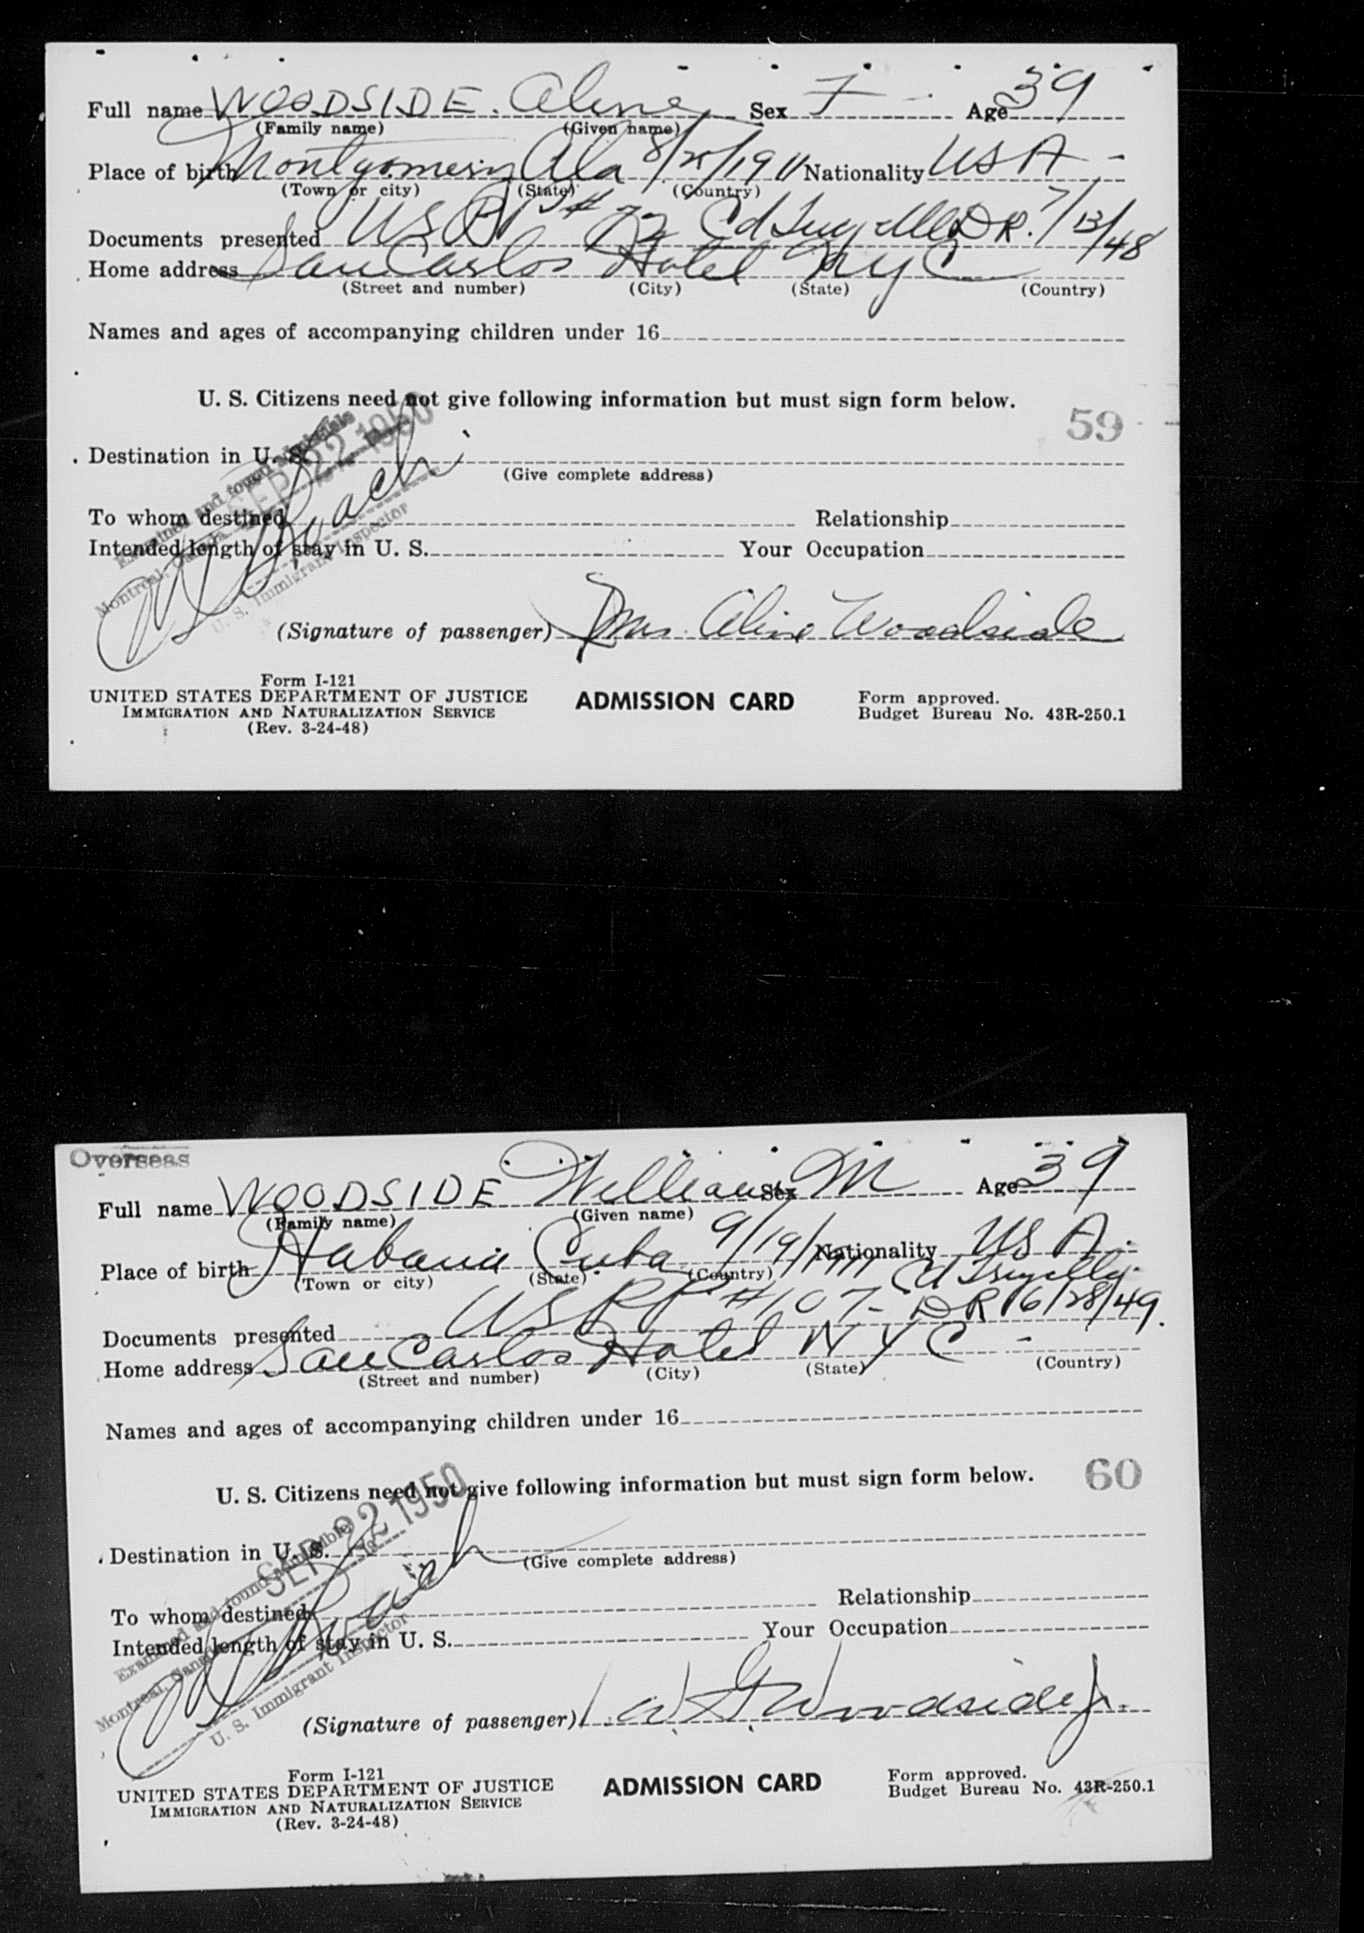 Full name WOODSIDE. Aline Sex F Age 39
(Family name) (Given name)
Place of birth Montgomery Ala 8/25/1911 Nationality USA
(Town or city) (State) (Country)
Documents presented USPP # 72 DR. 7/13/48
Home address San Carlos Hotel NYC
(Street and number) (City) (State) (Country)
Names and ages of accompanying children under 16
U. S. Citizens need not give following information but must sign form below.
59
Destination in U. S.
(Give complete address)
To whom destined Relationship
Intended length of stay in U. S. Your Occupation
Examined and found admissible
SEP 22 1950
Montreal, Canada
U. S. Immigrant Inspector
(Signature of passenger) Mrs. Aline Woodside
Form I-121
UNITED STATES DEPARTMENT OF JUSTICE
IMMIGRATION AND NATURALIZATION SERVICE
(Rev. 3-24-48)
ADMISSION CARD
Form approved.
Budget Bureau No. 43R-250.1
Overseas
Full name WOODSIDE William Sex M Age 39
(Family name) (Given name)
Place of birth Habana Cuba 9/19/1911 Nationality USA.
(Town or city) (State) (Country)
Documents presented USPP #107- DR 6/28/49.
Home address San Carlos Hotel NYC
(Street and number) (City) (State) (Country)
Names and ages of accompanying children under 16
U. S. Citizens need not give following information but must sign form below.
60
Destination in U. S.
(Give complete address)
To whom destined Relationship
Intended length of stay in U. S. Your Occupation
Examined and found admissible
SEP 22 1950
Montreal, Canada
U. S. Immigrant Inspector
(Signature of passenger) W. G. Woodside Jr.
Form I-121
UNITED STATES DEPARTMENT OF JUSTICE
IMMIGRATION AND NATURALIZATION SERVICE
(Rev. 3-24-48)
ADMISSION CARD
Form approved.
Budget Bureau No. 43R-250.1